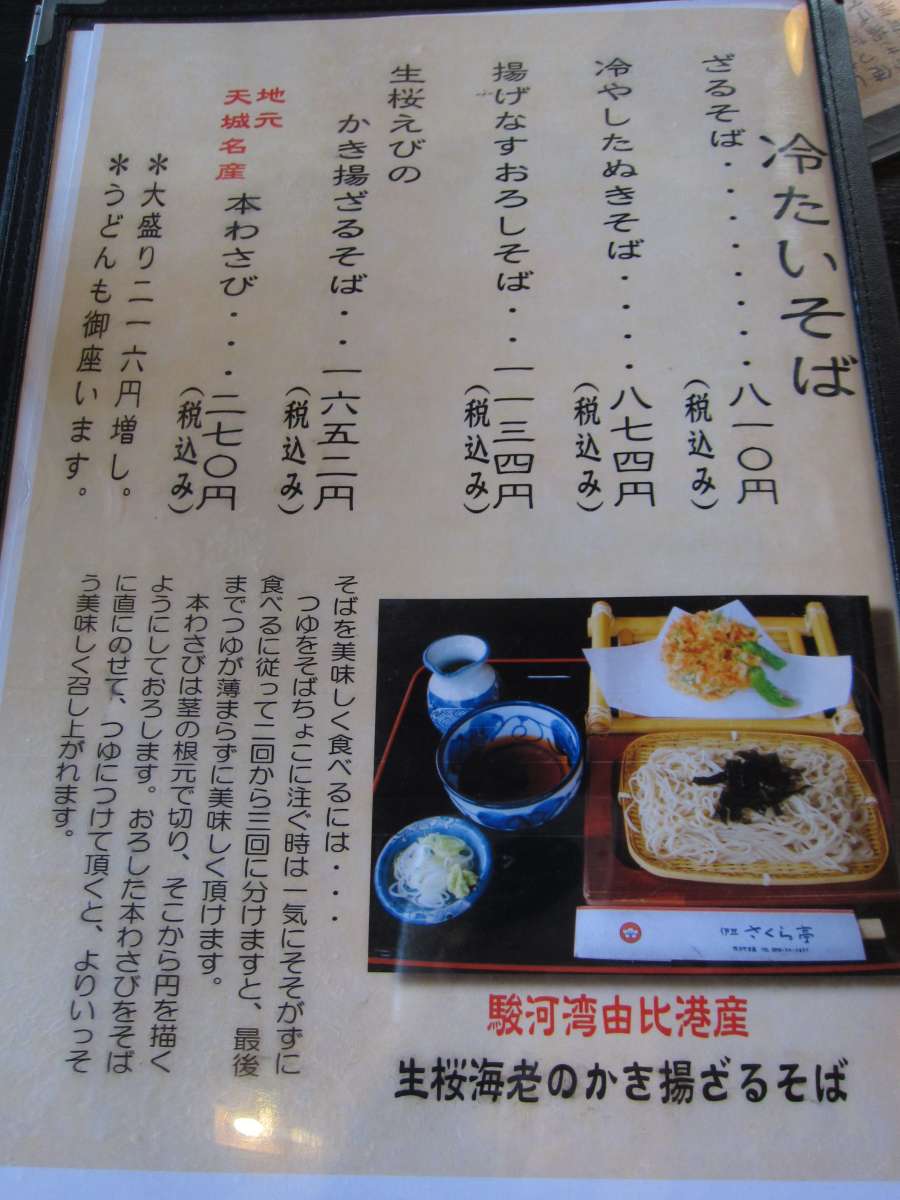 冷たいそば
ざるそば・・・・・・・八一〇円
(税込み)
冷やしたぬきそば・・・・八七四円
(税込み)
揚げなすおろしそば・・一一三四円
(税込み)
生桜えびの
かき揚ざるそば・・一六五二円
(税込み)
地元
天城名産
本わさび・・・二七〇円
(税込み)
＊大盛り二一六円増し。
＊うどんも御座います。
さくら亭
駿河湾由比港産
生桜海老のかき揚ざるそば
そばを美味しく食べるには・・・
つゆをそばちょこに注ぐ時は一気にそそがずに
食べるに従って二回から三回に分けますと、最後
までつゆが薄まらずに美味しく頂けます。
本わさびは茎の根元で切り、そこから円を描く
ようにしておろします。おろした本わさびをそば
に直にのせて、つゆにつけて頂くと、よりいっそ
う美味しく召し上がれます。